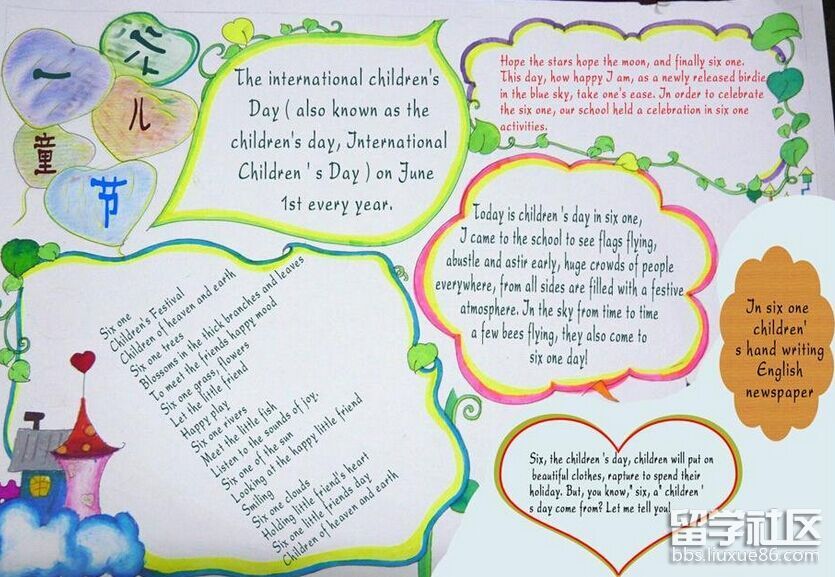 六
一
儿
童
节
The international children's
Day ( also known as the
children's day, International
Children ' s Day ) on June
1st every year.
Hope the stars hope the moon, and finally six one.
This day, how happy I am, as a newly released birdie,
in the blue sky, take one's ease. In order to celebrate
the six one, our school held a celebration in six one
activities.
Today is children 's day in six one,
I came to the school to see flags flying,
abustle and astir early, huge crowds of people
everywhere, from all sides are filled with a festive
atmosphere. In the sky from time to time
a few bees flying, they also come to
six one day!
In six one
children'
s hand writing
English
newspaper
Six one
Children's Festival
Children of heaven and earth
Six one trees
Blossoms in the thick branches and leaves
To meet the friends happy mood
Six one grass, flowers
Let the little friend
Happy play
Six one rivers
Meet the little fish
Listen to the sounds of joy.
Six one of the sun
Looking at the happy little friend
Smiling
Six one clouds
Holding little friend's heart
Six one little friends day
Children of heaven and earth
Six, the children 's day, children will put on
beautiful clothes, rapture to spend their
holiday. But, you know," six, a" children '
s day come from? Let me tell you!
留学社区
bbs.liuxue86.com